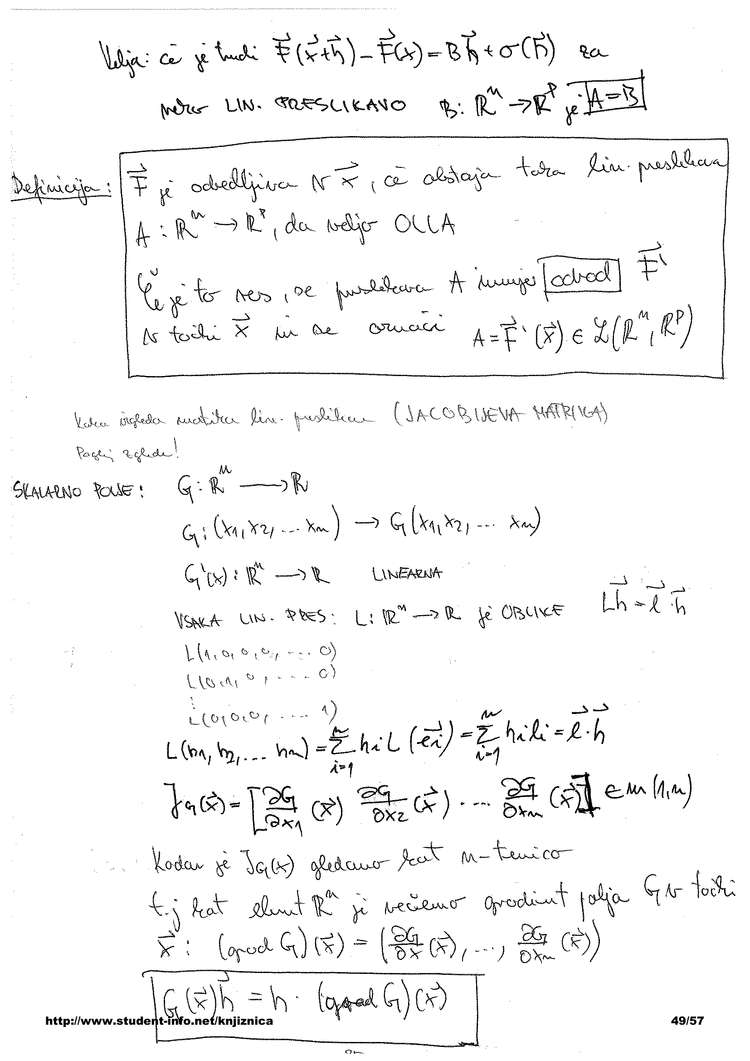 Velja: če je tudi F⃗(x⃗+h⃗) − F⃗(x) = Bh⃗ + σ(h⃗) za
neko LIN. PRESLIKAVO B: ℝⁿ → ℝᵖ je A=B
Definicija: F⃗ je odvedljiva v x⃗, če obstaja taka lin. preslikava
A: ℝⁿ → ℝᵖ, da veljo
Če je to res, se preslikava A imenuje odvod F⃗'
v točki x⃗ in se označi A = F⃗'(x⃗) ∈ ℒ(ℝⁿ, ℝᵖ)
Kako izgleda matrika lin. preslikave (JACOBIJEVA MATRIKA)
Poglej zglede!
SKALARNO POLJE: G: ℝⁿ → ℝ
G: (x₁, x₂, ... xₙ) → G(x₁, x₂, ... xₙ)
G'(x): ℝⁿ → ℝ LINEARNA
VSAKA LIN. PRES: L: ℝⁿ → ℝ je OBLIKE Lh⃗ = l⃗·h⃗
L(1,0,0,0, .... 0)
L(0,1,0, .... 0)
⋮
L(0,0,0, .... 1)
L(h₁, h₂, ... hₙ) = ∑ᵢ₌₁ⁿ hᵢ L(e⃗ᵢ) = ∑ᵢ₌₁ⁿ hᵢlᵢ = l⃗·h⃗
J_G(x⃗) = [∂G/∂x₁ (x⃗) ∂G/∂x₂ (x⃗) .... ∂G/∂xₙ (x⃗)] ∈ m(1,n)
Kadar je J_G(x) gledamo kot n-terico
t.j kot element ℝⁿ ji rečemo gradient polja G v točki
x⃗: (grad G)(x⃗) = (∂G/∂x (x⃗), ..., ∂G/∂xₙ (x⃗))
G'(x⃗)h⃗ = h · (grad G)(x⃗)
http://www.student-info.net/knjiznica 49/57